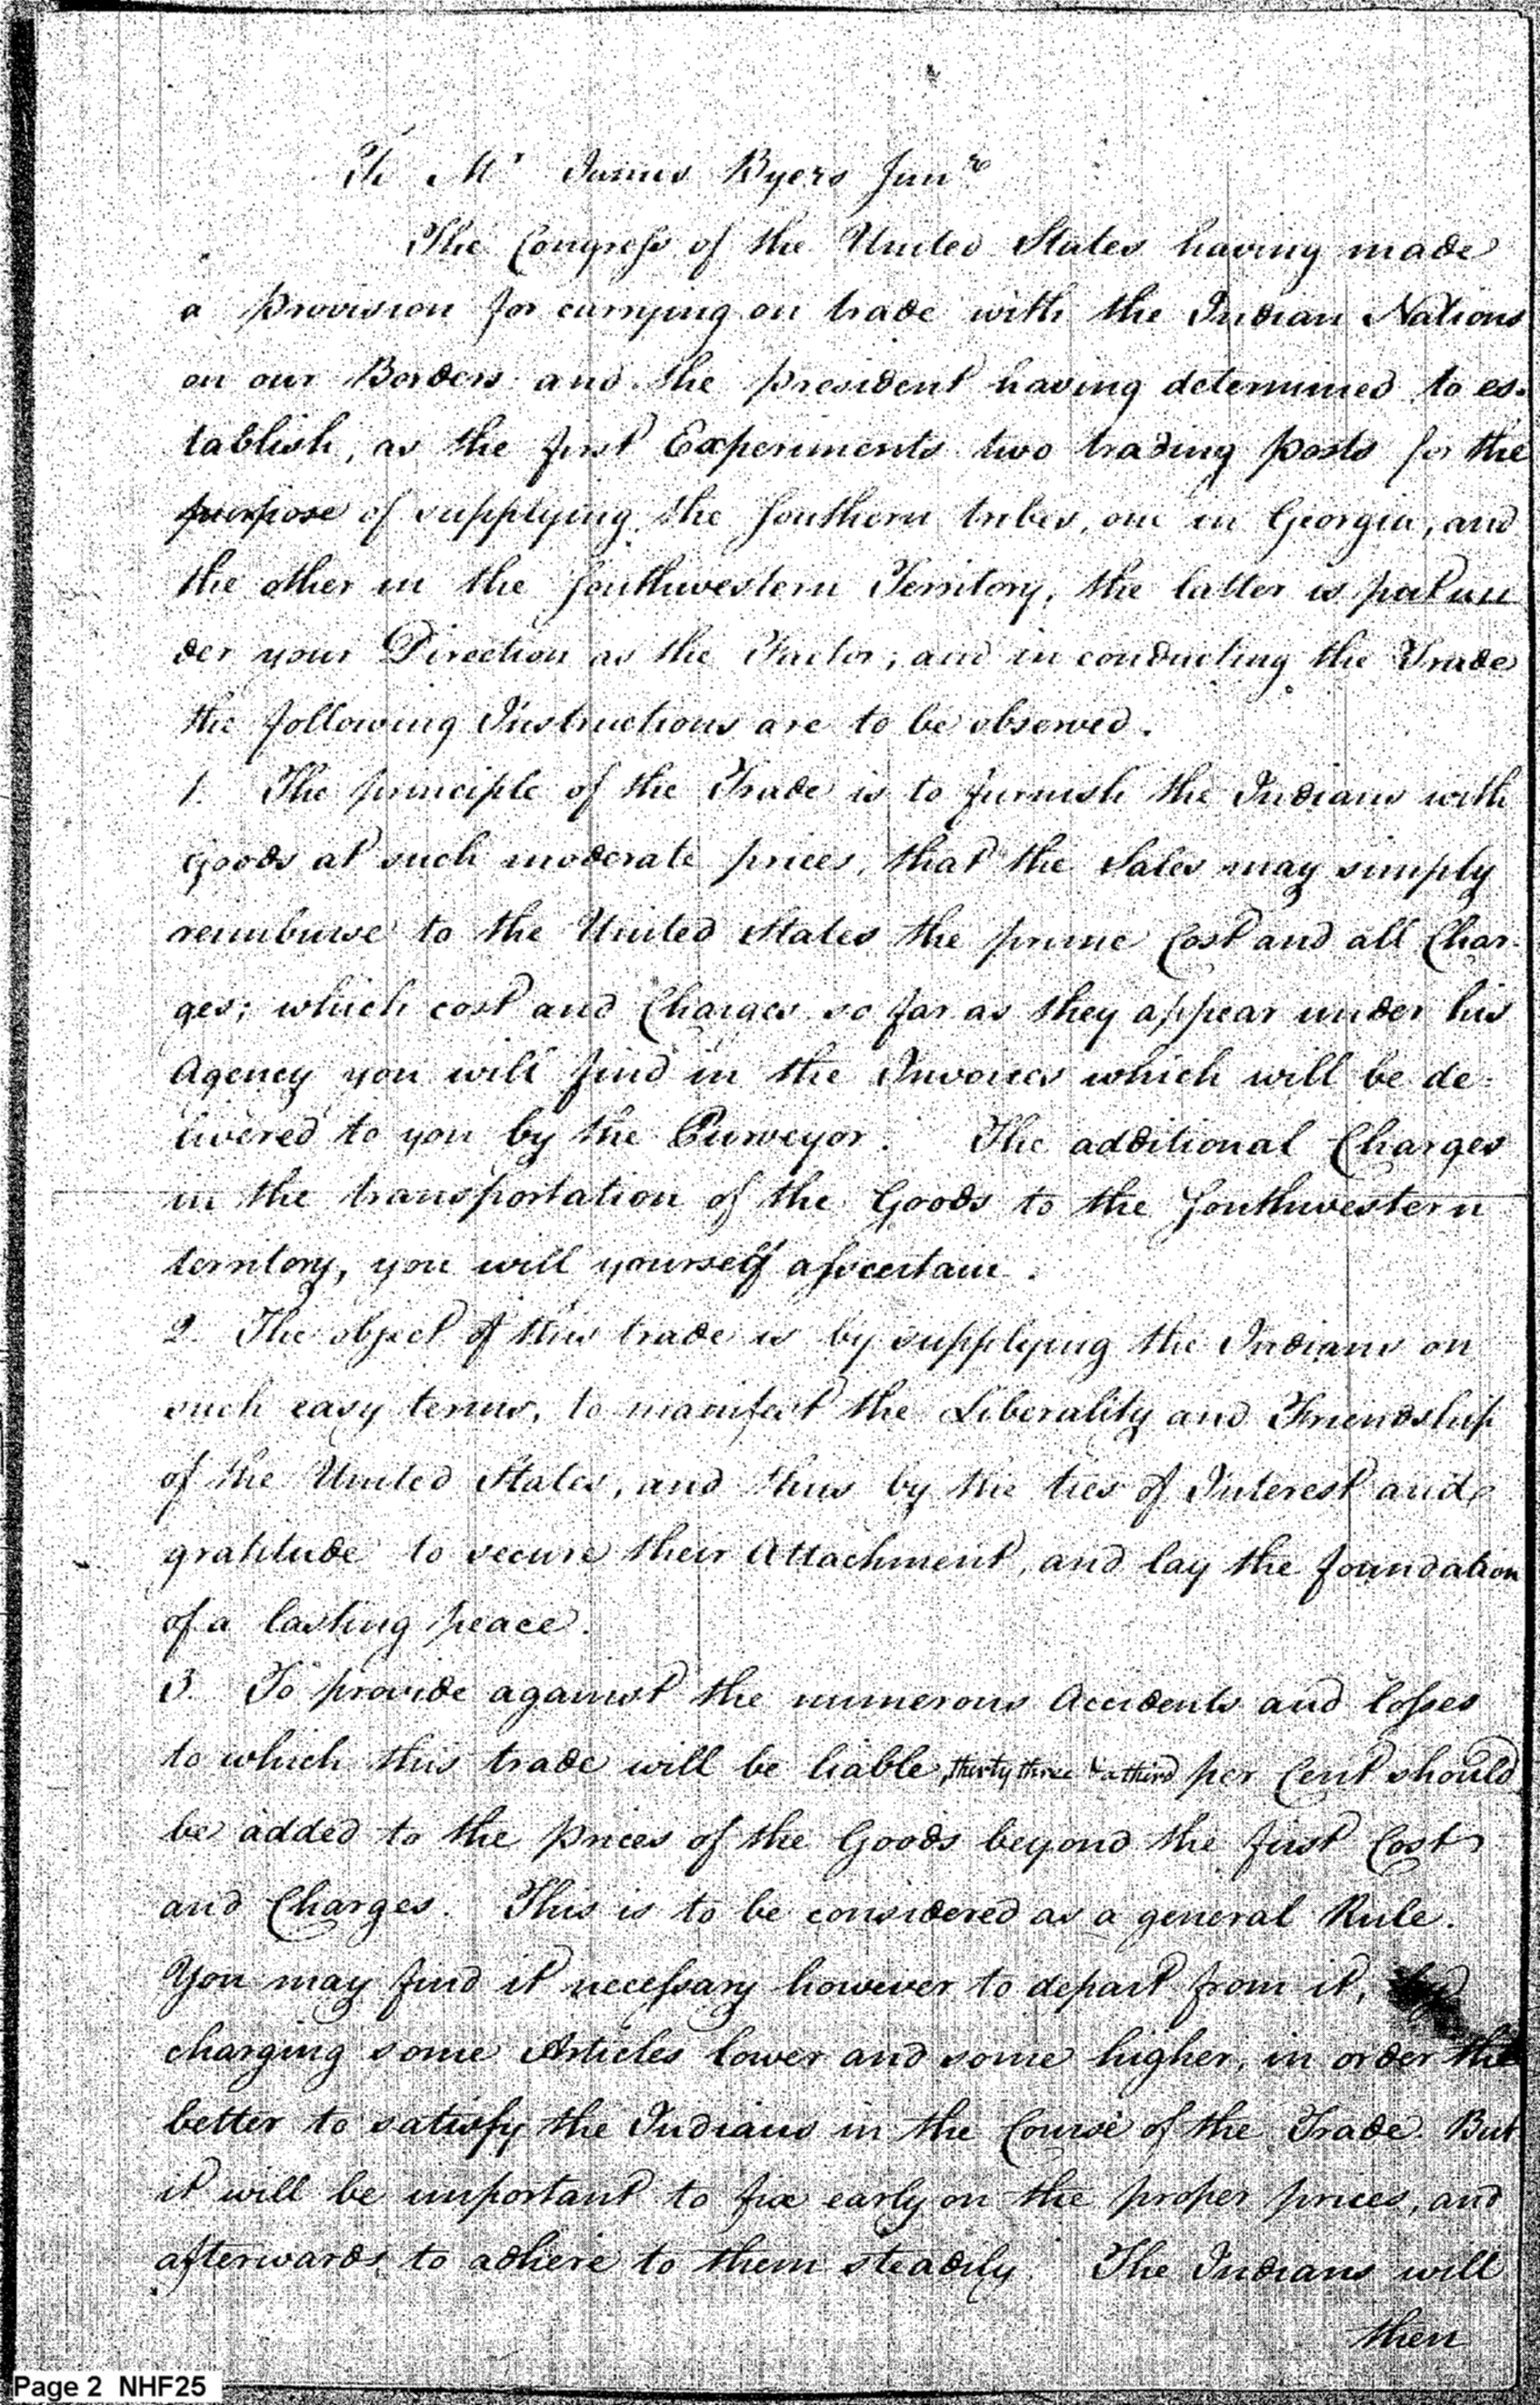 To Mr James Byers Junr
The Congress of the United States having made
a provision for carrying on trade with the Indian Nations
on our Borders and the president having determined to es-
tablish, as the first Experiments two trading posts for the
purpose of supplying the Southern tribes, one in Georgia, and
the other in the Southwestern Territory, the latter is put un
der your Direction as the Factor; and in conducting the Trade
the following Instructions are to be observed.
1. The principle of the Trade is to furnish the Indians with
Goods at such moderate prices, that the Sales may simply
reimburse to the United States the prime Cost and all Char-
ges; which cost and Charges so far as they appear under his
Agency you will find in the Invoices which will be de-
livered to you by the Purveyor. The additional Charges
in the transportation of the Goods to the Southwestern
territory, you will yourself assertain.
2. The object of this trade is by supplying the Indians on
such easy terms, to manifest the Liberality and Friendship
of the United States, and thus by the ties of Interest and
gratitude to secure their Attachment, and lay the foundation
of a lasting peace.
3. To provide against the numerous Accidents and losses
to which this trade will be liable, thirty three & a third per Cent should
be added to the prices of the Goods beyond the first Cost
and Charges. This is to be considered as a general Rule.
You may find it necessary however to depart from it,
charging some Articles lower and some higher, in order the
better to satisfy the Indians in the Course of the Trade. But
it will be important to fix early on the proper prices, and
afterwards to adhere to them steadily. The Indians will
then
Page 2 NHF25